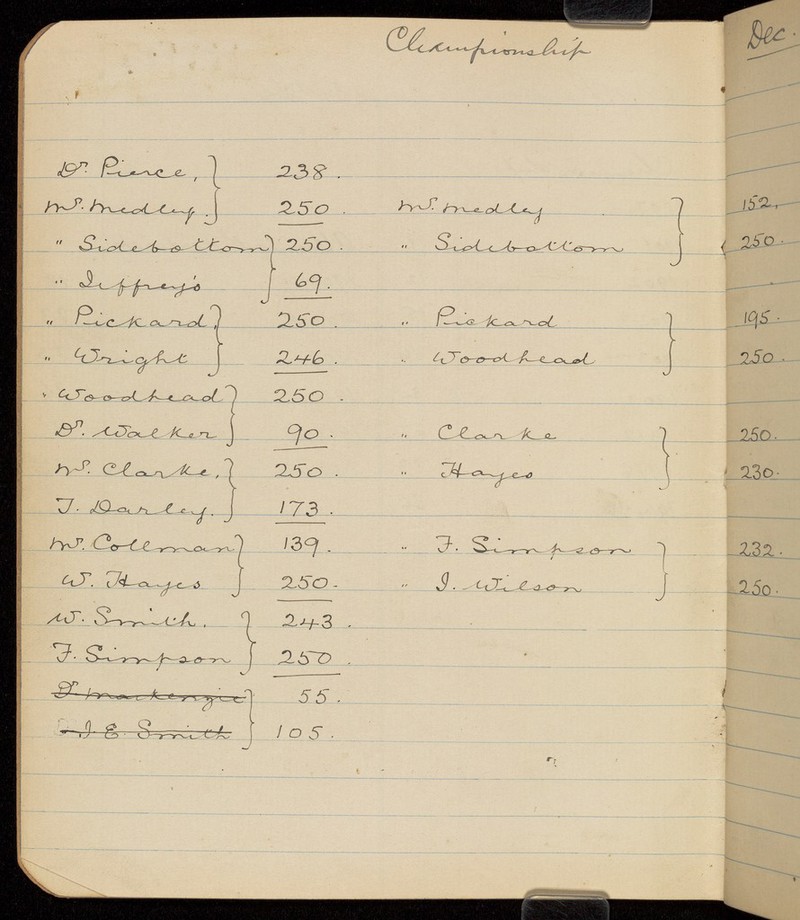 Championship
Dec.
Dr. Pierce, 238.
Mr. Medley. 250. Mr. Medley 152,
" Sidebottom 250. " Sidebottom 250.
" Jeffrey's 69.
" Pickard, 250. " Pickard 195.
" Wright 246. " Woodhead 250.
" Woodhead 250.
Dr. Walker 90. " Clarke 250.
Mr. Clarke, 250. " Hayes 230.
T. Darley. 173.
Mr. Collman 139. " F. Simpson 232.
W. Hayes 250. " J. Wilson 250.
W. Smith. 243.
F. Simpson 250.
Dr. Mackenzie 55.
J. E. Smith 105.